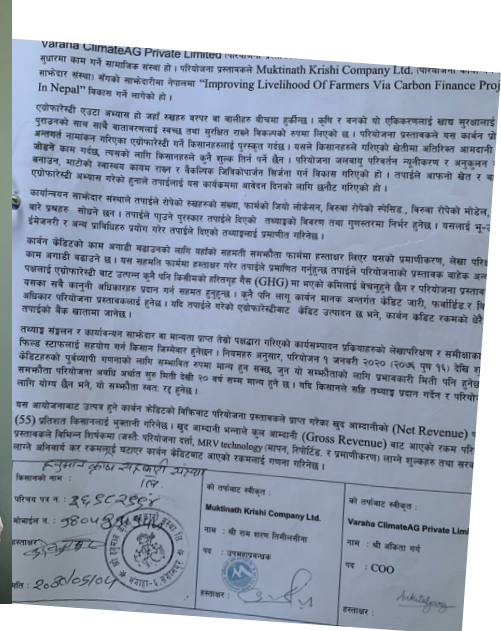 Varaha ClimateAG Private Limited
सुधारमा काम गर्ने सामाजिक संस्था हो । परियोजना प्रस्तावकले Muktinath Krishi Company Ltd.
साझेदार संस्था) सँगको साझेदारीमा नेपालमा "Improving Livelihood Of Farmers Via Carbon Finance Proj
In Nepal" विकास गर्ने लागेको हो ।
एग्रोफारेस्ट्री एउटा अभ्यास हो जहाँ रूखहरू वरपर वा बालीहरू बीचमा हुर्किन्छ । कृषि र वनको यो एकिकरणलाई खाद्य सुरक्षालाई
पुराउनको साथ साथै वातावरणलाई स्वच्छ तथा सुरक्षित राख्ने विकल्पको रुपमा लिएको छ । परियोजना प्रस्तावकले यस कार्बन
अन्तर्गत नामांकन गरिएका एग्रोफारेस्ट्री गर्ने किसानहरुलाई पुरस्कृत गर्दछ । यसले किसानहरुले गरिएको खेतीमा अतिरिक्त आमदानी
जोड्ने काम गर्दछ, त्यसको लागि किसानहरुले कुनै शुल्क तिर्न पर्ने छैन । परियोजना जलवायु परिवर्तन न्यूनीकरण र अनुकुलन
बनाउन, माटोको स्वास्थ्य कायम राख्न र वैकल्पिक जिविकोपार्जन सिर्जना गर्न विकास गरिएको हो । तपाईले आफ्नो खेत र
एग्रोफारेस्ट्री अभ्यास गरेको हुनाले तपाईलाई यस कार्यक्रममा आवेदन दिनको लागि छनौट गरिएको हो ।
कार्यान्वयन साझेदार संस्थाले तपाईले रोपेको रुखहरुको संख्या, फार्मको जियो लोकेसन, बिरुवा रोपेको स्पेसिड, बिरुवा रोपेको मोडेल,
बारे प्रश्नहरु सोध्ने छन । तपाईले पाउने पुरस्कार तपाईले दिएको तथ्याङ्कको विवरण तथा गुणस्तरमा निर्भर हुनेछ । यसलाई
ईमेजनरी र अन्य प्राविधिहरु प्रयोग गरेर तपाईले दिएको तथ्याङ्कलाई प्रमाणीत गरिनेछ ।
कार्बन क्रेडिटको काम अगाडी बढाउनको लागि यहाँको सहमती सम्झौता फार्ममा हस्ताक्षर लिएर यसको प्रमाणीकरण, लेखा
काम अगाडी बढाउने छ । यस सहमति फार्ममा हस्ताक्षर गरेर तपाईले प्रमाणित गर्नुहुन्छ तपाईले परियोजनाको प्रस्तावक बाहेक
पक्षलाई एग्रोफारेस्ट्री बाट उत्पन्न कुनै पनि किसीमको हरितगृह गैंस (GHG) मा भएको कमिलाई बेच्नुहुने छैन र परियोजना
यसका सबै कानुनी अधिकारहरु प्रदान गर्न सहमत हुनुहुन्छ । कुनै पनि लागू कार्बन मानक अन्तर्गत क्रेडिट जारी,
अधिकार परियोजना प्रस्तावकलाई हुनेछ । यदि तपाईले गरेको एग्रोफारेस्ट्रीबाट क्रेडिट उत्पादन छ भने, कार्बन क्रेडिट रकमको
तपाईको बैंक खातामा जानेछ ।
तथ्याङ्क सङ्कलन र कार्यावन्यन साझेदार वा मान्यता प्राप्त तेस्रो पक्षद्वारा गरिएको कार्यसम्पादन प्रक्रियाहरुको लेखापरिक्षण र
फिल्ड स्टाफलाई सहयोग गर्न किसान जिम्मेवार हुनेछन । नियमहरु अनुसार, परियोजना १ जनवरी २०२० (२०७६ पुष १६) देखि
क्रेडिटहरुको पुर्वव्यापी गणनाको लागि सम्भावित रुपमा मान्य हुन सक्छ, जुन यो सम्झौताको लागि प्रभावकारी मिति पनि
सम्झौता परियोजना अवधि अर्थात सुरु मिती देखी २० वर्ष सम्म मान्य हुने छ । यदि किसानले सहि तथ्याङ्क प्रदान गर्दैन र
लागि योग्य छैन भने, यो सम्झौता स्वतः रद्द हुनेछ ।
यस आयोजनाबाट उत्पन्न हुने कार्बन क्रेडीटको बिक्रिबाट परियोजना प्रस्तावकले प्राप्त गरेका खुद आम्दानीको (Net Revenue)
(55) प्रतिशत किसानलाई भुक्तानी गरिनेछ । खुद आम्दानी भन्नाले कुल आम्दानी (Gross Revenue) बाट आएको रकम
प्रस्तावकले विभिन्न शिर्षकमा (जस्तैः परियोजना दर्ता, MRV technology (मापन, रिपोर्टिङ र प्रमाणीकरण) लाग्ने शुल्कहरु तथा
लाग्ने अनिवार्य कर रकमलाई घटाएर कार्बन क्रेडिटबाट आएको रकमलाई गणना गरिनेछ ।
किसानको नाम :
परिचय पत्र न. :
मोबाईल न. :
हस्ताक्षर
को तर्फबाट स्वीकृत :
Muktinath Krishi Company Ltd.
नाम : श्री राम शरण तिमील्सीना
पद : उपमहाप्रबन्धक
हस्ताक्षर :
को तर्फबाट स्वीकृत :
Varaha ClimateAG Private Limi
नाम : श्री अंकिता गर्ग
पद : COO
हस्ताक्षर :